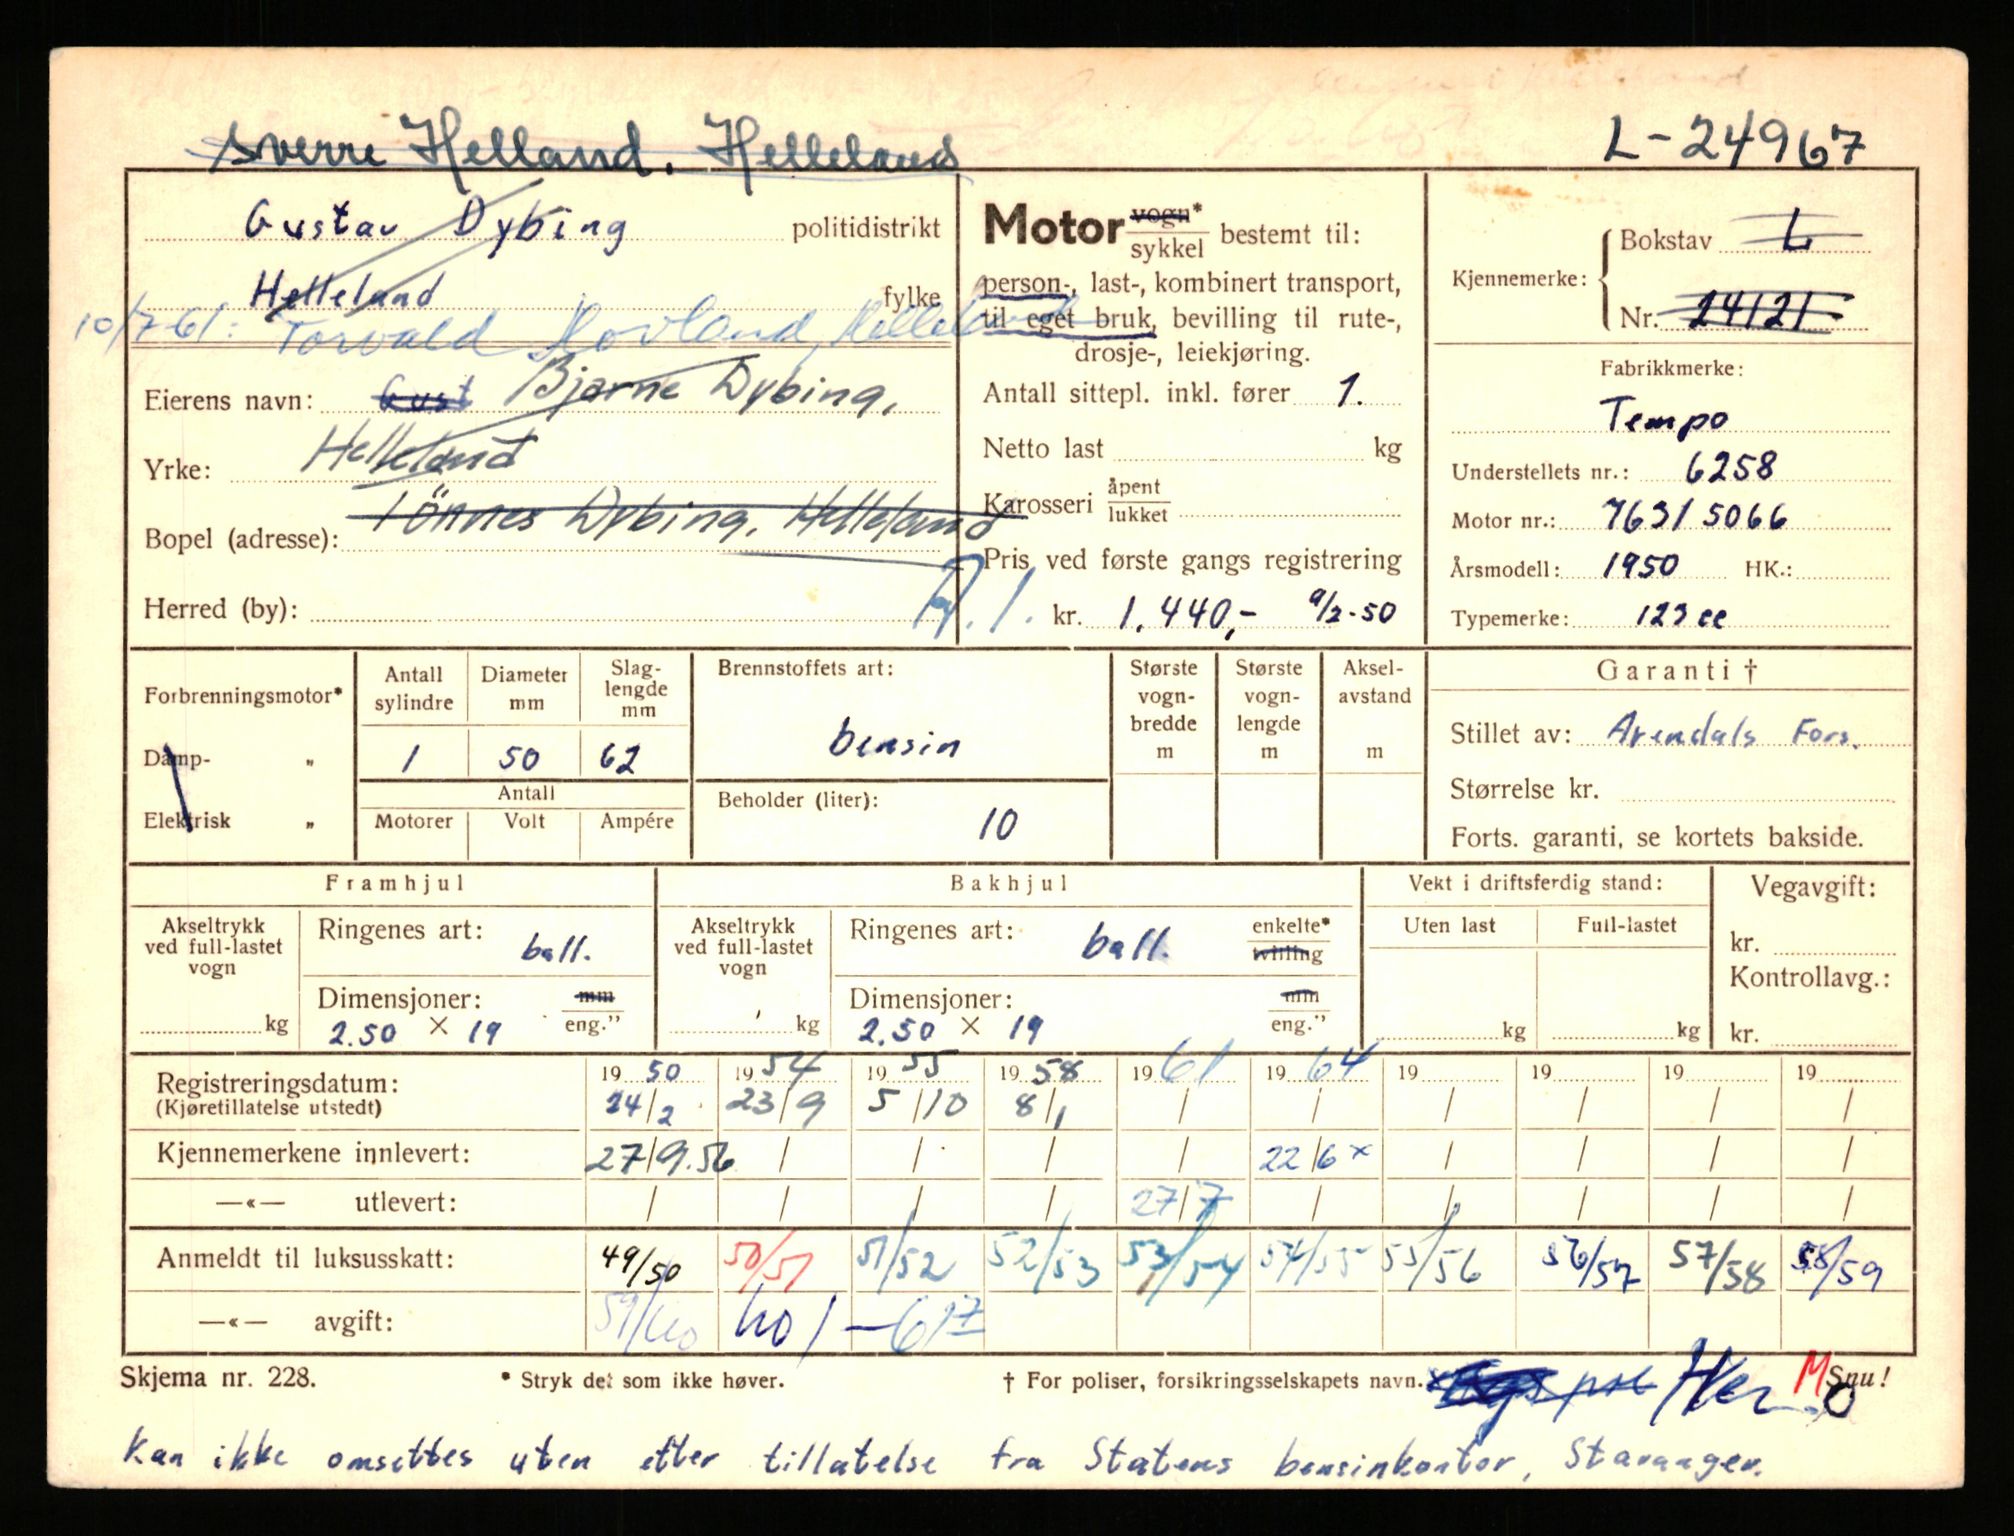 Sverre Helland. Helleland
L-24967
Gustav Dybing politidistrikt
Helleland fylke
10/7-61: Torvald Hovland, Helleland
Eierens navn: Gust Bjarne Dybing,
Yrke: Helleland
Tönnes Dybing, Helleland
Bopel (adresse):
Herred (by):
Motor vogn* sykkel bestemt til:
person-, last-, kombinert transport,
til eget bruk, bevilling til rute-,
drosje-, leiekjøring.
Antall sittepl. inkl. fører 1.
Netto last kg
Karosseri åpent lukket
Pris ved første gangs registrering
kr. 1.440,- 9/2-50
Kjennemerke: Bokstav L
Nr. 24121
Fabrikkmerke:
Tempo
Understellets nr.: 6258
Motor nr.: 763/5066
Årsmodell: 1950 HK.:
Typemerke: 123 cc
Forbrenningsmotor*
Damp- „
Elektrisk „
Antall sylindre
Diameter mm
Slag-lengde mm
1 50 62
Antall
Motorer Volt Ampére
Brennstoffets art:
bensin
Beholder (liter):
10
Største vogn-bredde m
Største vogn-lengde m
Aksel-avstand m
Garanti †
Stillet av: Arendals Fors.
Størrelse kr.
Forts. garanti, se kortets bakside.
Framhjul
Akseltrykk ved full-lastet vogn
kg
Ringenes art: ball.
Dimensjoner: mm eng."
2.50 × 19
Bakhjul
Akseltrykk ved full-lastet vogn
kg
Ringenes art: ball. enkelte* tvilling
Dimensjoner: mm eng."
2.50 × 19
Vekt i driftsferdig stand:
Uten last Full-lastet
kg kg
Vegavgift:
kr.
Kontrollavg.:
kr.
Registreringsdatum: 19 50 19 54 19 55 19 58 19 61 19 64 19 19 19 19
(Kjøretillatelse utstedt) 24/2 23/9 5/10 8/1 / / / / / /
Kjennemerkene innlevert: 27/9.56 / / / / 22/6 x / / / /
—«— utlevert: / / / / 27/7 / / / / /
Anmeldt til luksusskatt: 49/50 50/51 51/52 52/53 53/54 54/55 55/56 56/57 57/58 58/59
—«— avgift: 59/60 60/-61
Skjema nr. 228. * Stryk det som ikke høver. † For poliser, forsikringsselskapets navn. M Snu!
Kan ikke omsettes uten etter tillatelse fra Statens bensinkontor, Stavanger.